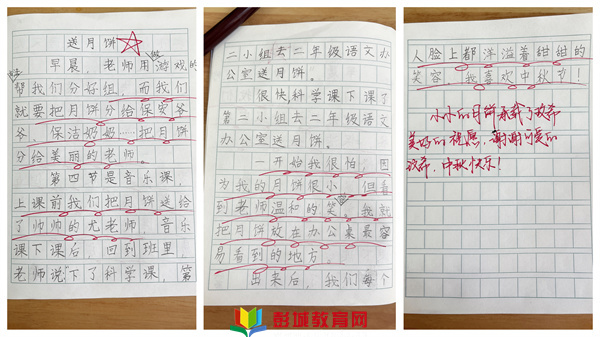 送月饼
早晨，老师用游戏的
帮我们分好组，而我们
就要把月饼分给保安爷
爷，保洁奶奶……把月饼
分给美丽的老师。
第四节是音乐课，
上课前我们把月饼送给
了帅帅的尤老师，音乐
课下课后，回到班里，
老师说"下了科学课，第
二小组去二年级语文办
公室送月饼。
很快，科学课下课了
第二小组去二年级语文
办公室送月饼。
一开始我很怕，因
为我的月饼很小，但看
到老师温和的笑，我就
把月饼放在办公桌最容
易看到的地方。
出来后，我们每个
人脸上都洋溢着甜甜的
笑容，我喜欢中秋节！
小小的月饼承载了
美好的祝愿，谢谢可爱的
中秋快乐！
彭城教育网